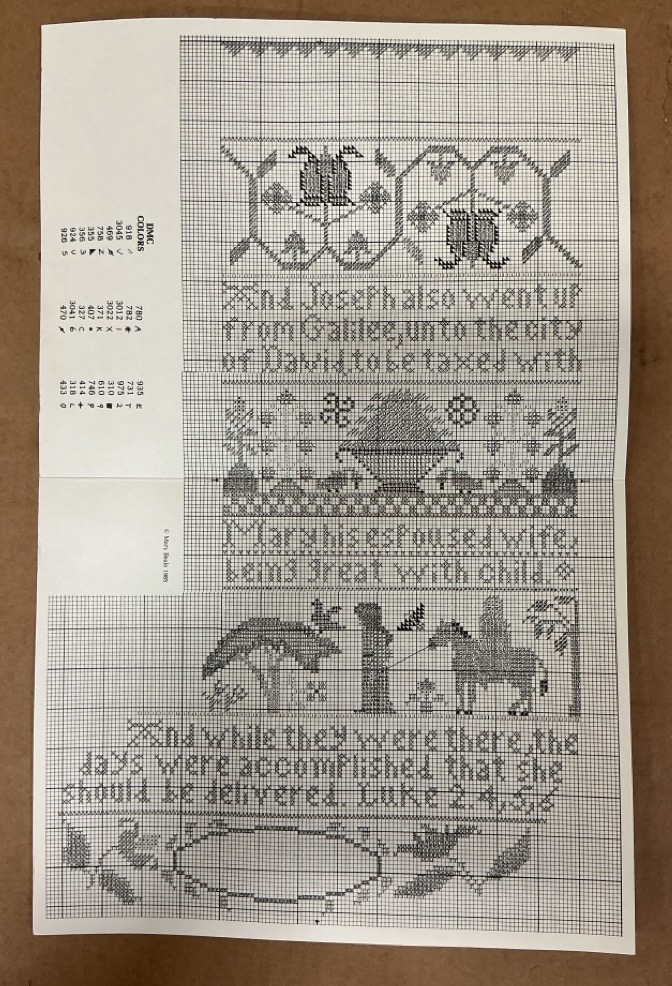 And Joseph also went up
from Galilee, unto the city
of David, to be taxed with
Mary his espoused wife,
being great with child.
And while they were there, the
days were accomplished that she
should be delivered. Luke 2. 4, 5, 6
DMC
COLORS
918
3045 V
469
758 Z
355
356 3
924 U
926 S
780 A
782
3012 I
3022 X
371 K
407
327 C
3041 6
470
935 E
731 T
975 2
310 ■
610 9
746 P
414 +
318 L
433 O
© Mary Beale 1985